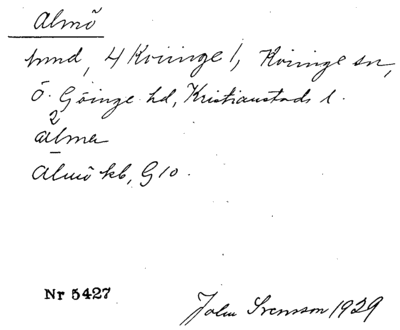 Almö
hmd, 4 Kviinge 1, Kviinge sn,
Ö. Göinge hd, Kristianstads l.
2
alme
Almö kb, G10.
Nr 5427
John Svensson 1929